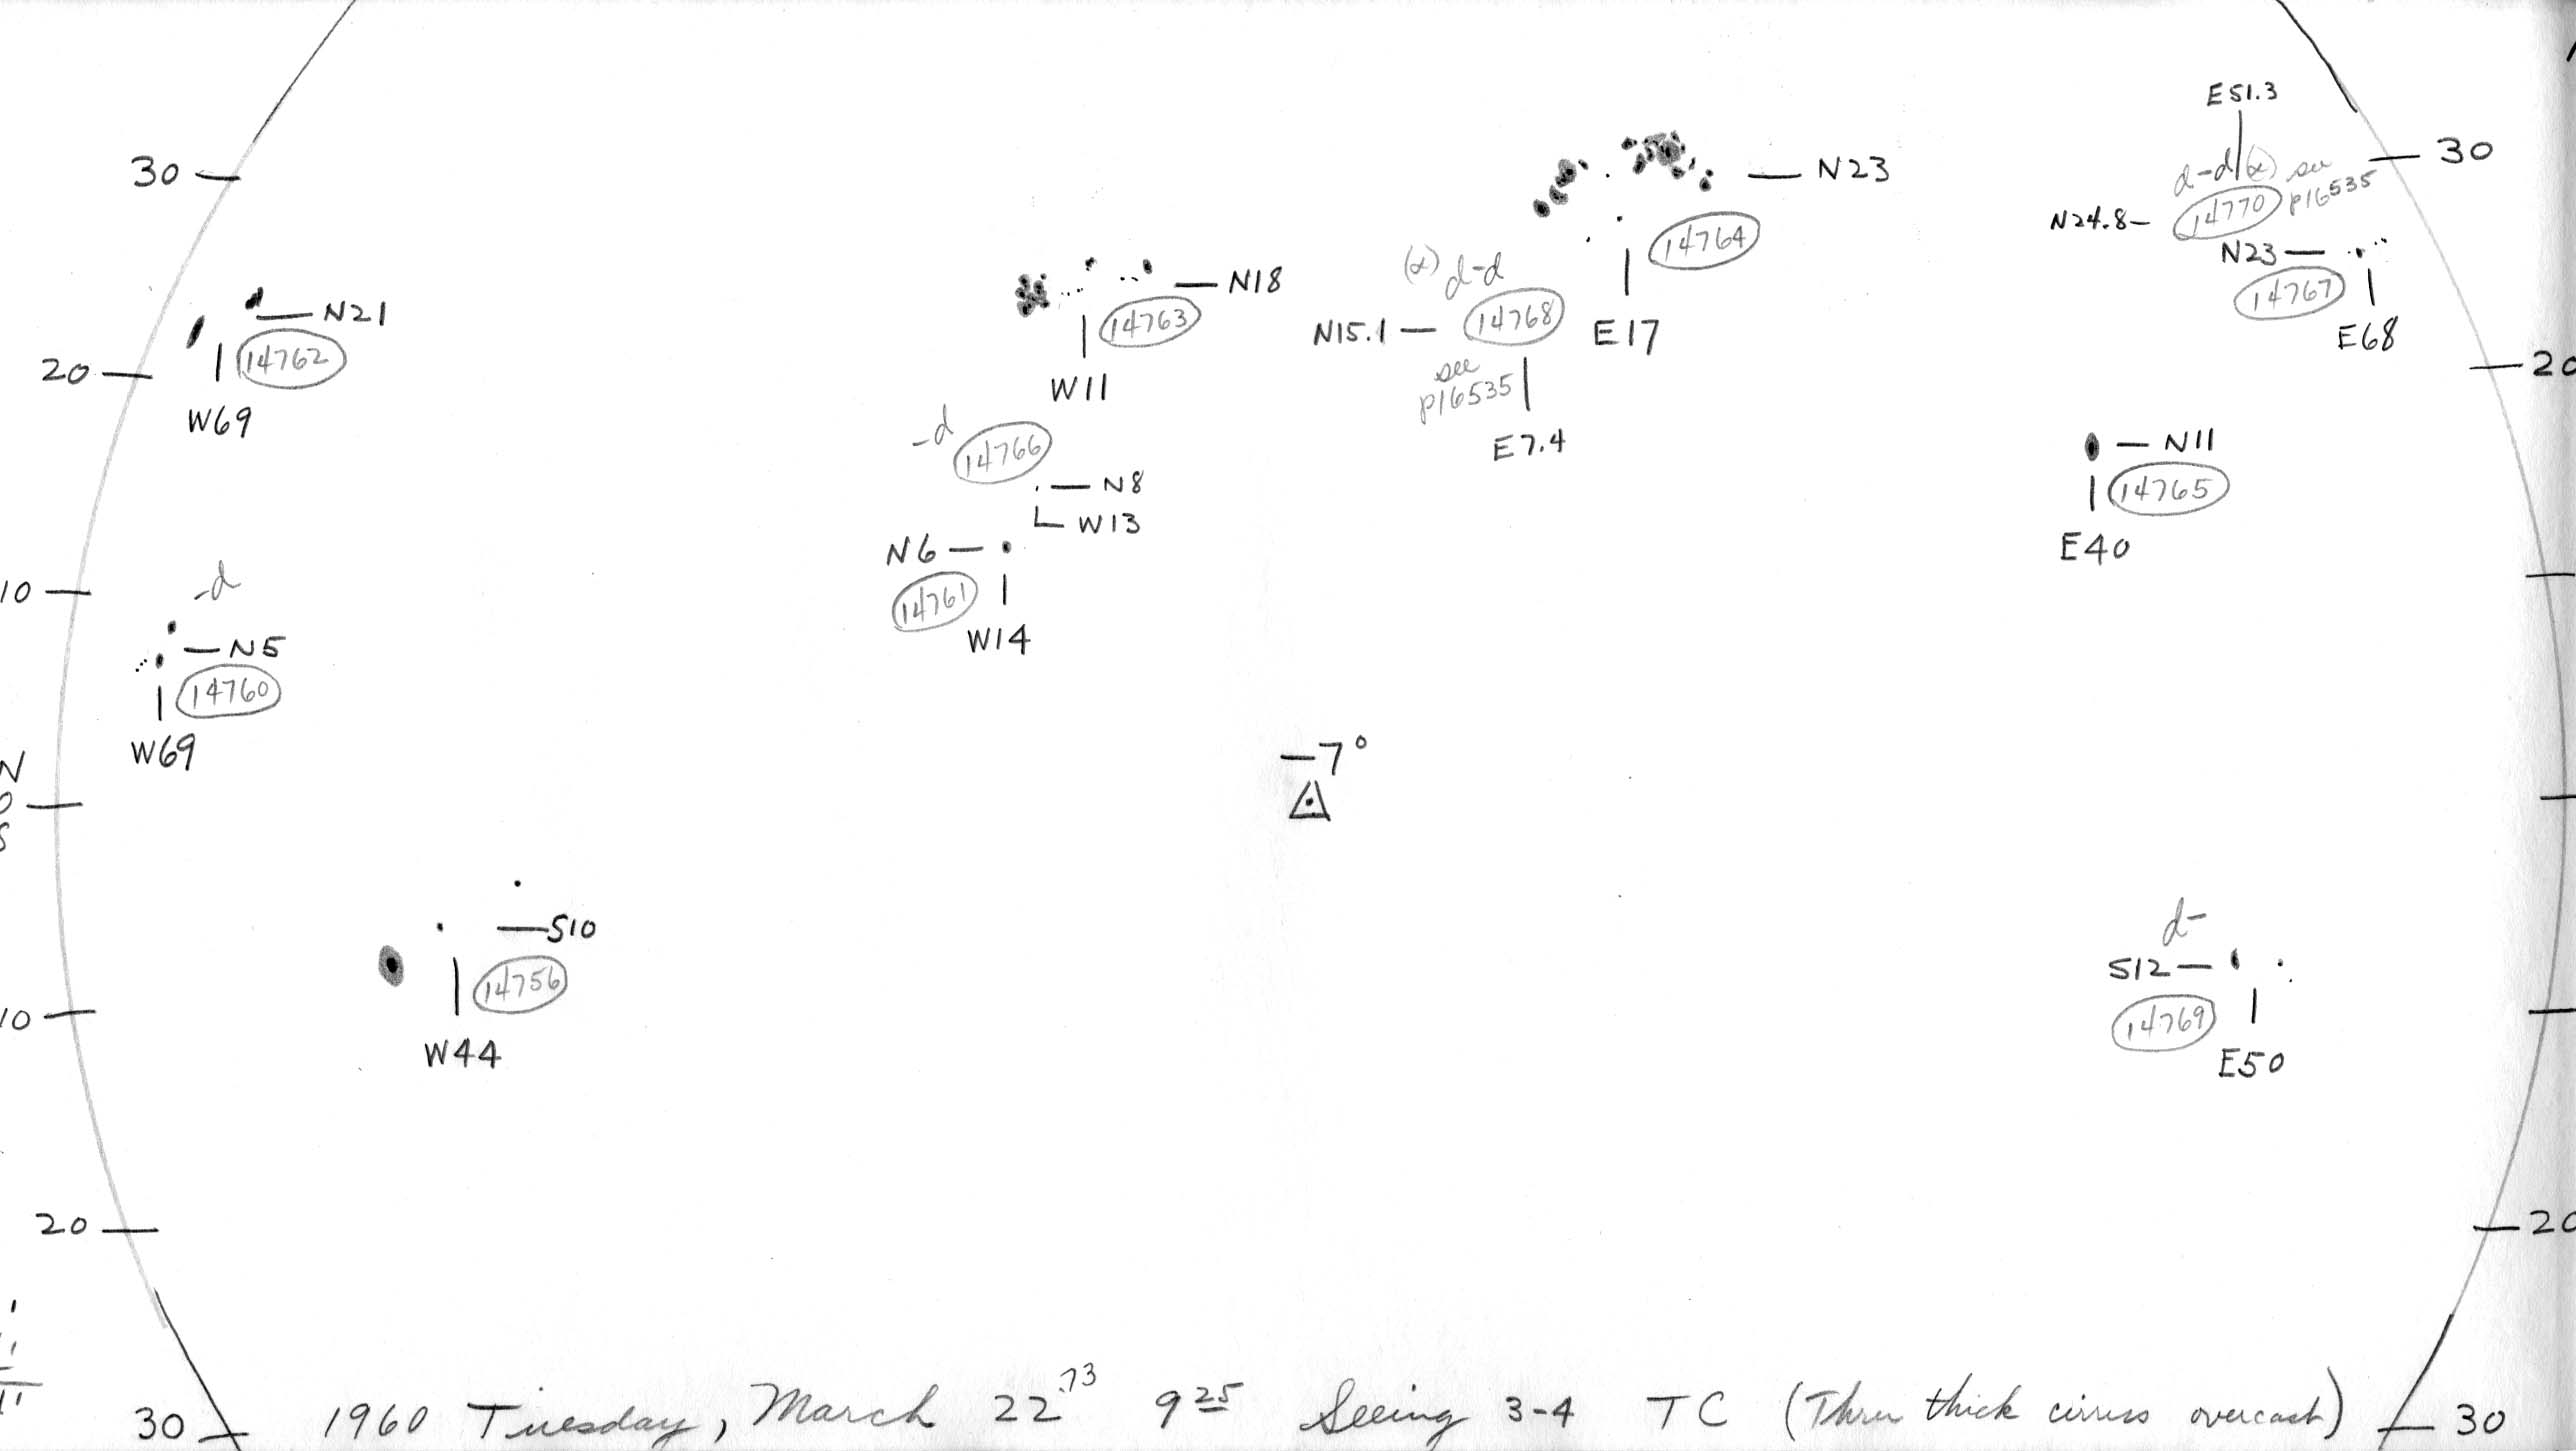 E51.3
30
30
d-d (α) see
p16535
14770
N24.8
N23
14764
N23
14767
E68
(α) d-d
14768
N15.1
see
p16535
E7.4
E17
N18
14763
W11
N21
14762
W69
20
20
-d
14766
N8
W13
N6
14761
W14
N11
14765
E40
10
-d
N5
14760
W69
N
0
S
-7°
S10
14756
W44
d-
S12
14769
E50
10
20
20
30
1960 Tuesday, March 22.73 9 25 Seeing 3-4 TC (Thru thick cirrus overcast)
30